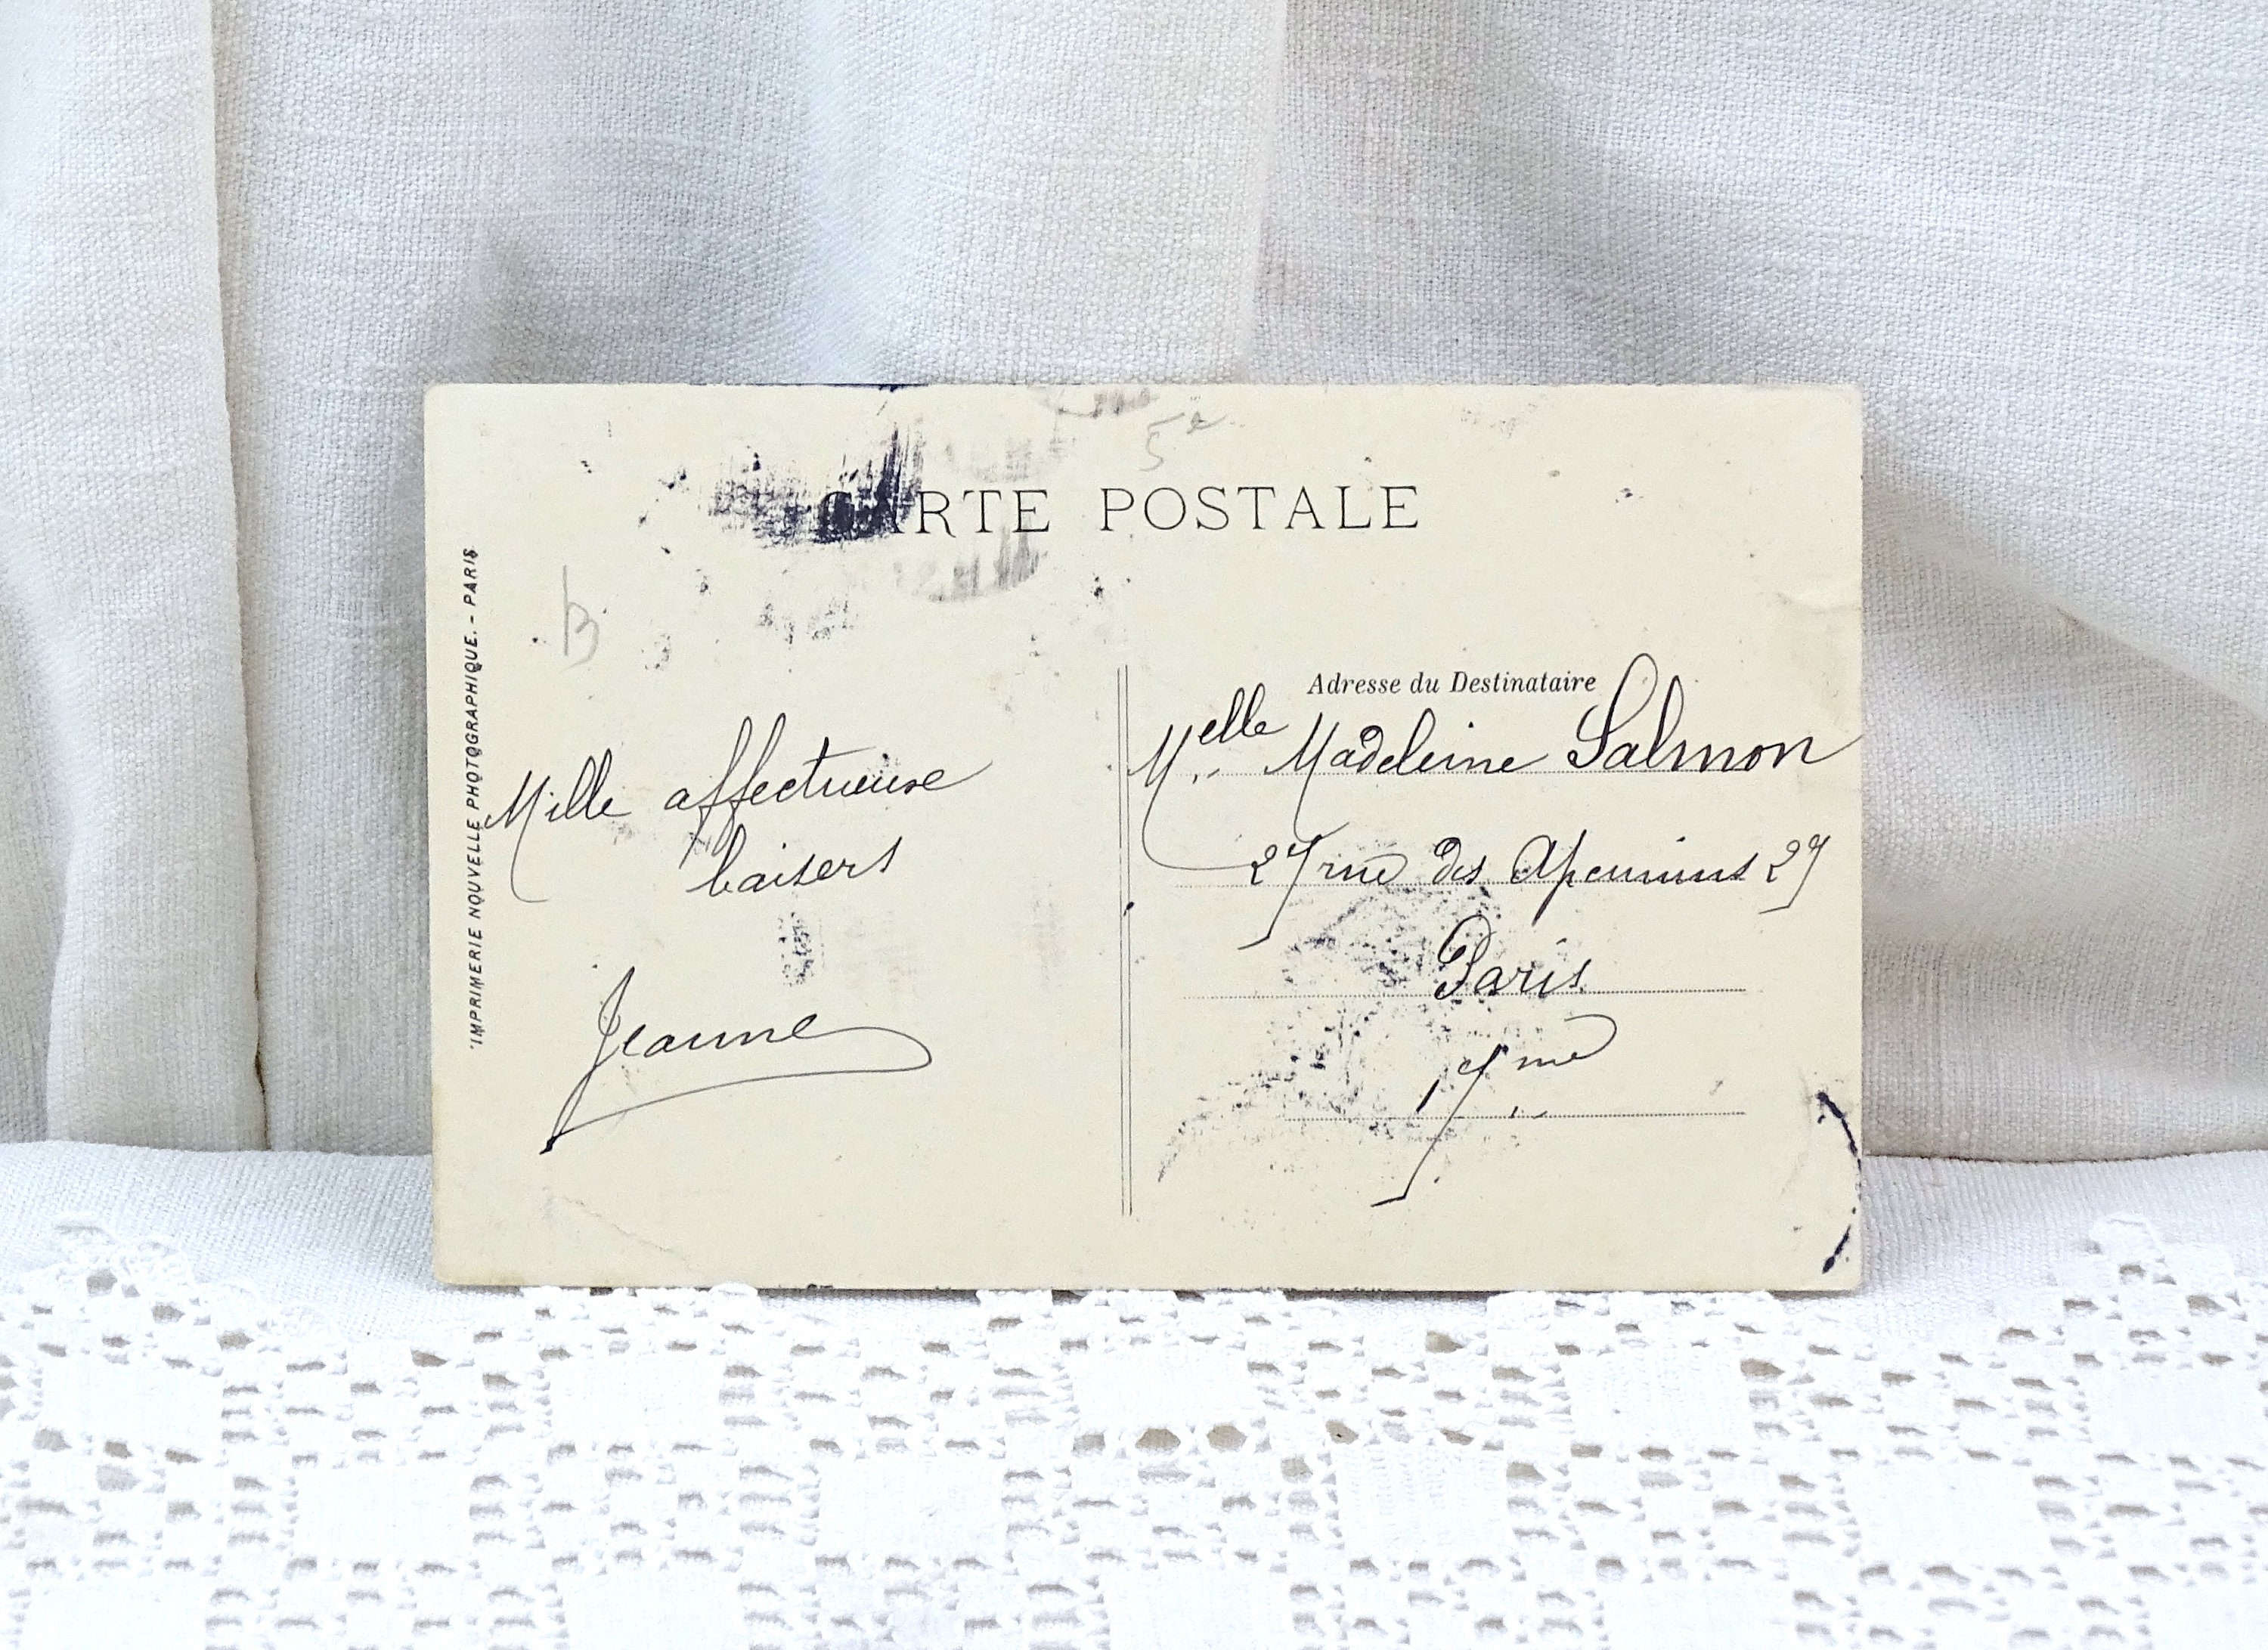 5e
CARTE POSTALE
IMPRIMERIE NOUVELLE PHOTOGRAPHIQUE. - PARIS
B
Mille affectueuse
baisers
Jeanne
Adresse du Destinataire
Melle Madeleine Salmon
27 rue des Apennins 27
Paris
17me